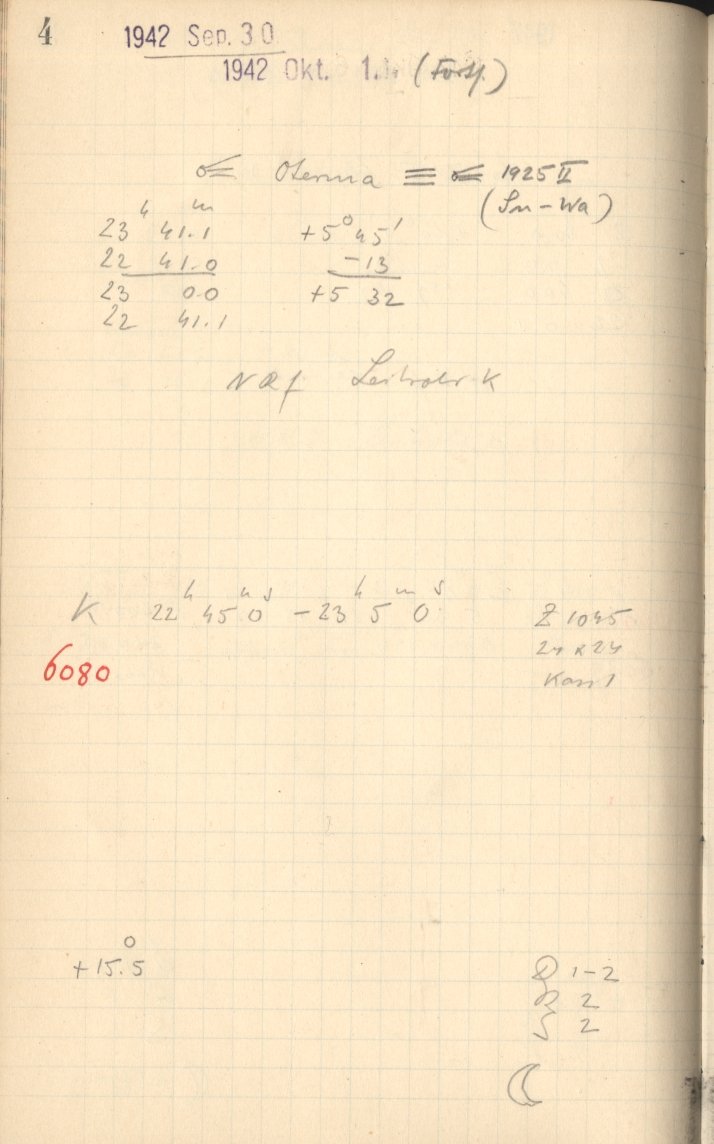 4
1942 Sep. 30
1942 Okt. 1. (Forts.)
☄ Oterma ≡ ☄ 1925 II
(Su-Wa)
23ʰ 41.1ᵐ +5° 45'
22 41.0 -13
23 0.0 +5 32
22 41.1
Leitrohr K
K 22ʰ 45ᵐ 0ˢ - 23ʰ 5ᵐ 0ˢ Z 1045
6080 24 x 24
Kass 1
+15.5°
D 1-2
R 2
S 2
☾